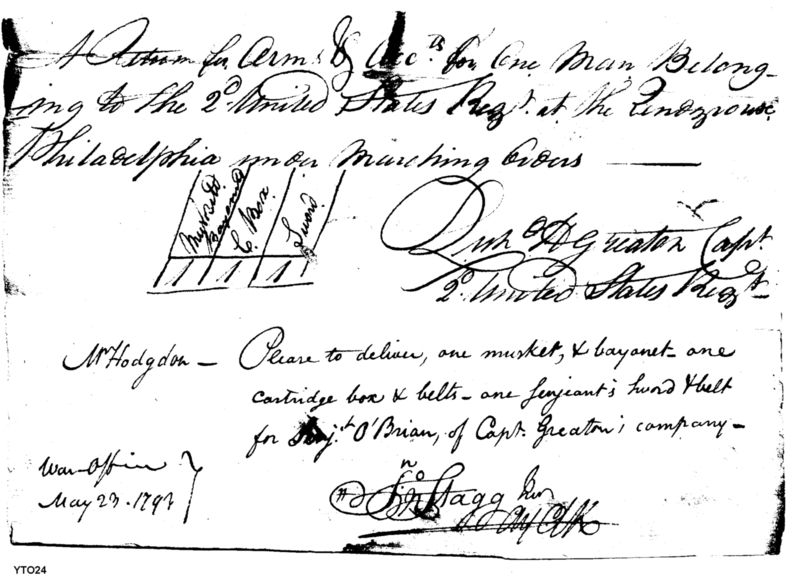 A Return for Arms & Acc.ts for One Man Belong-
ing to the 2.d United States Reg.t at the Rendzvouse
Philadelphia under Marching Orders
Muskets Bayonets C. Box. Sword
1 1 1 1
H Greaton Capt.
2.d United States Reg.t
Mr Hodgdon — Please to deliver, one musket, & bayonet - one
cartridge box & belts - one Serjeant's Sword & belt
for Serj.t O'Brian, of Capt. Greaton's company -
War-Office
May 23. 1791
Jn.o Stagg Jun.r
YTO24